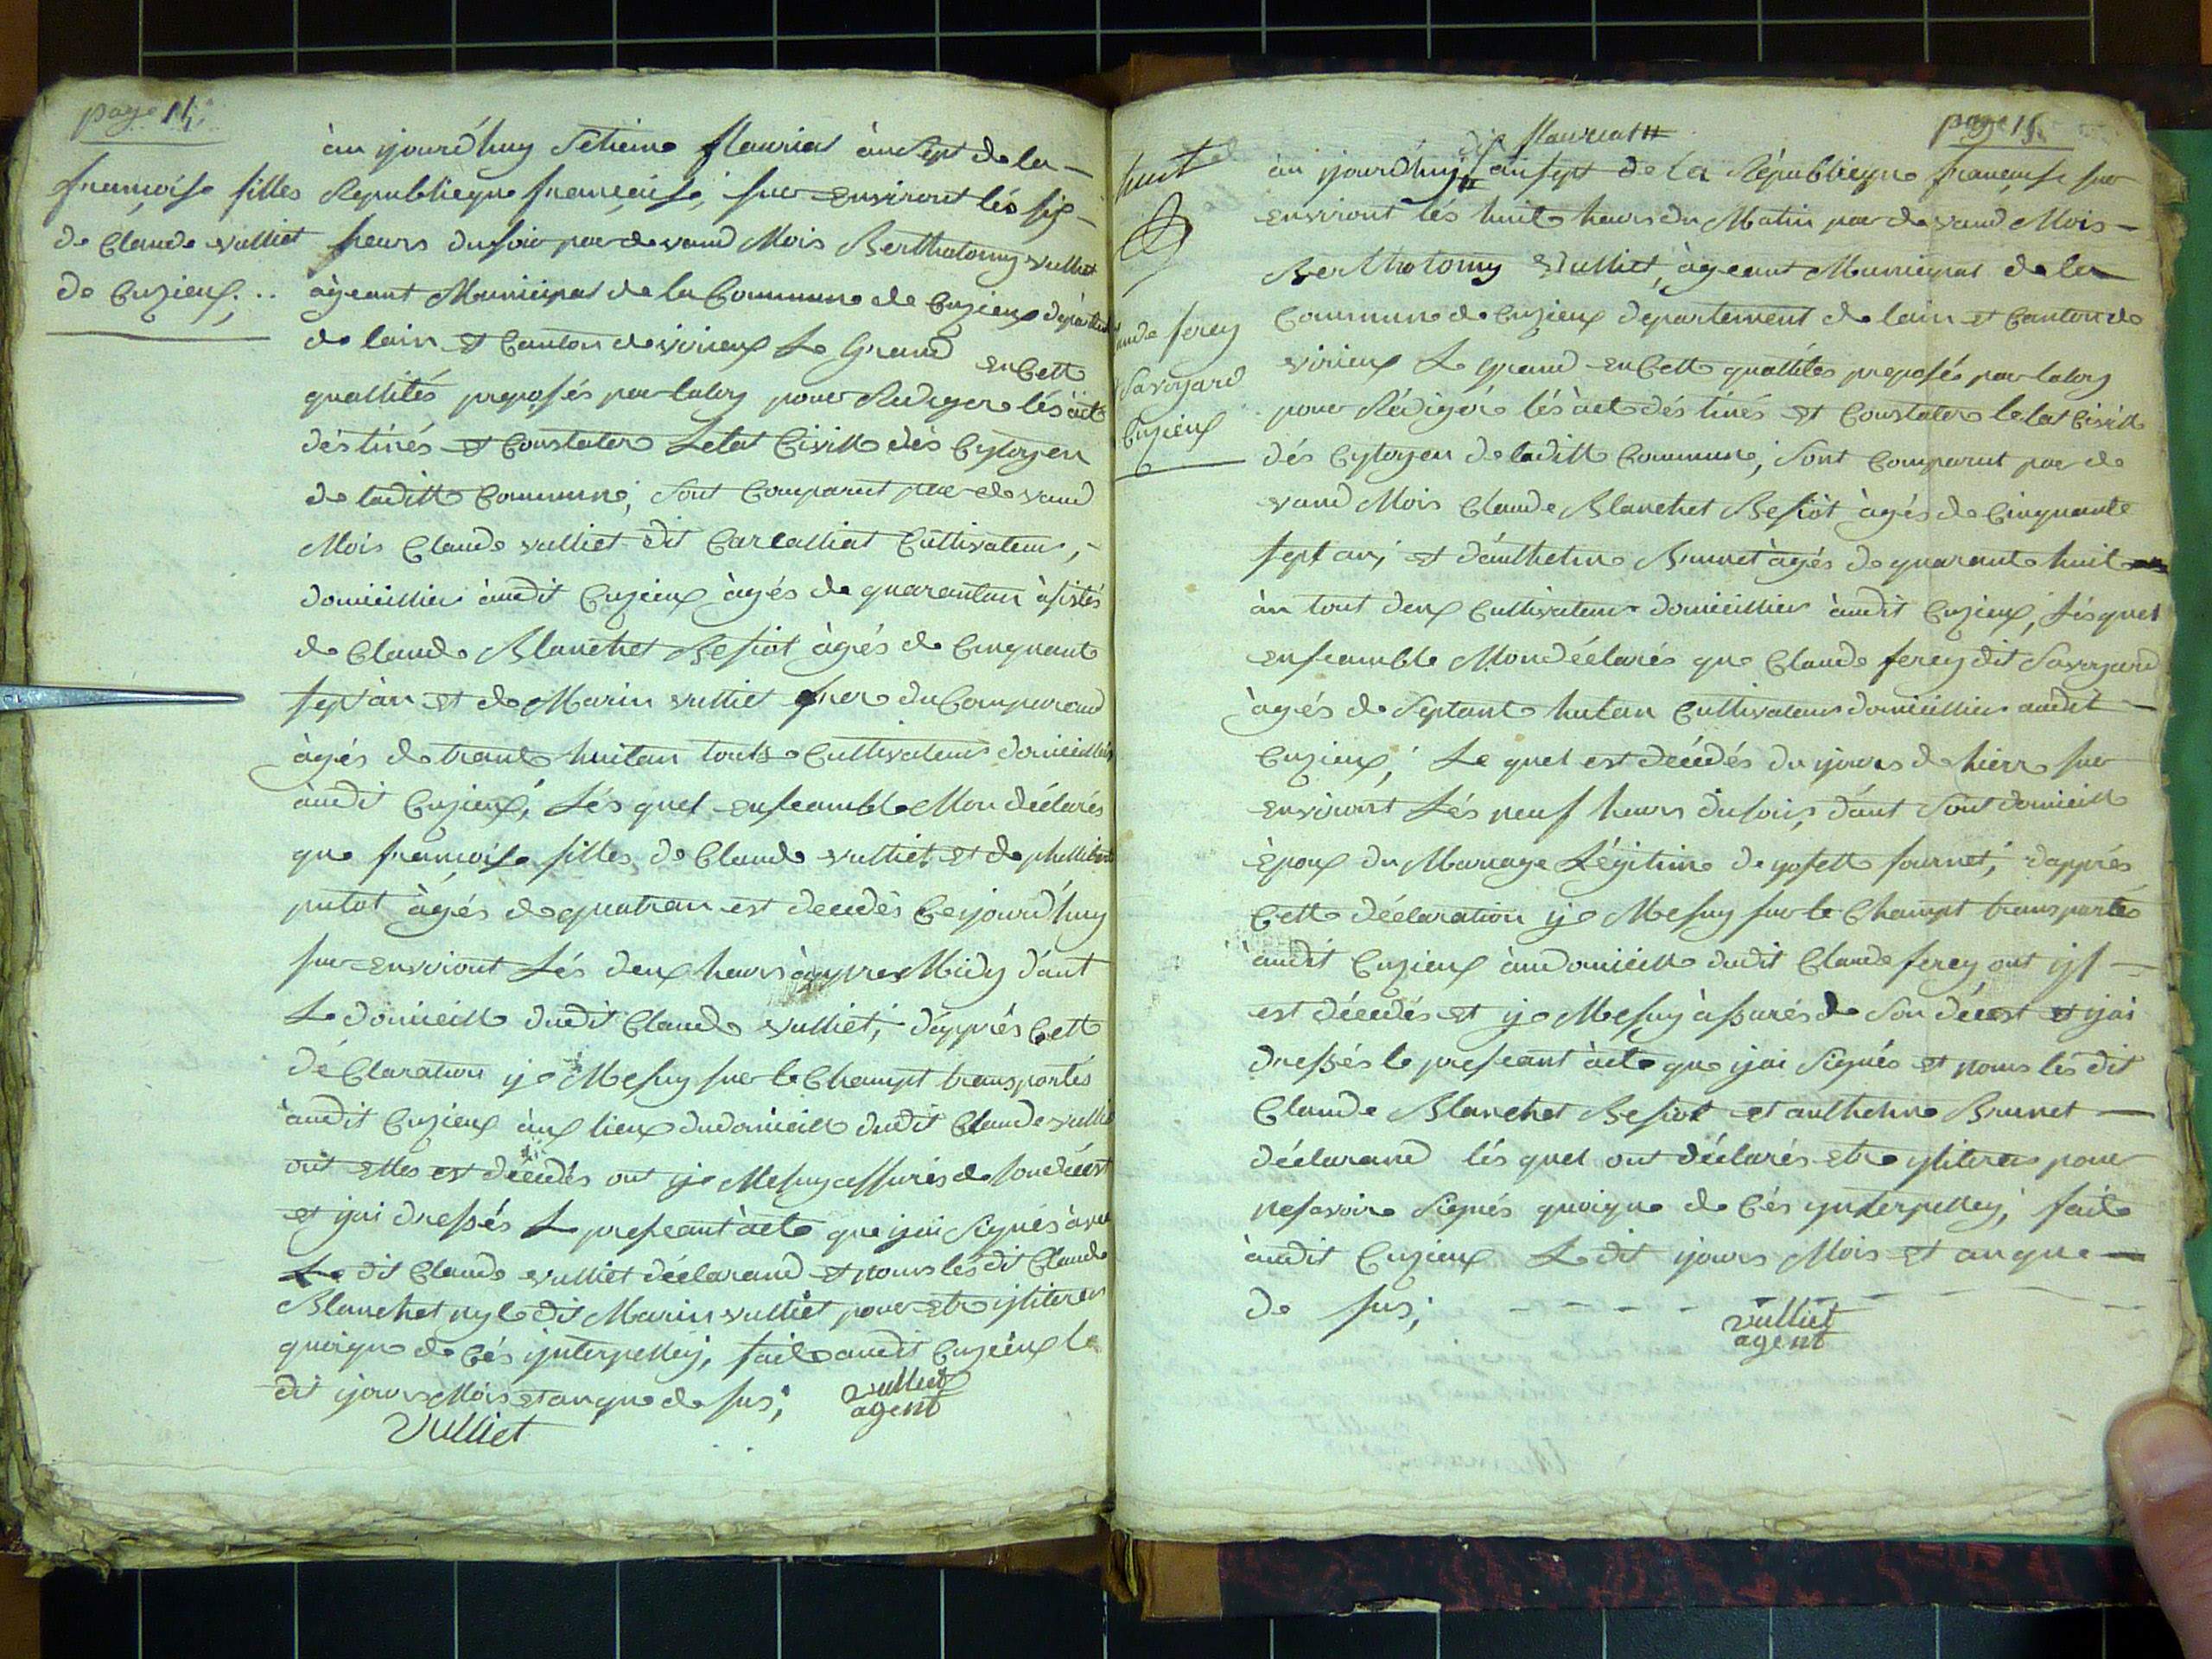 page 14
françoise filles
de Claude vulliet
de Cuzieux;..
àu ijourd'huy Setieme flaurial àu Sept de la
Republieque françaisé, sur environt lés six
heurs du soir par de vand Mois Berthotomy vulliet
àgeant Municipal de la Commune de Cuzieux départ
de lain et Canton de virieux Le Grand en Cette
quallités preposés par la loy pour Rediger lés àct
déstinés et Constater Letat Civill dés Cytoyen
de laditte Commune; Sont Comparut par de vand
Mois Claude vulliet dit Carcalliat Cultivateur,
domicillier àudit Cuzieux àgés de quarantan àsistés
de Claude Blanchet Besiot àgés de Cinquante
sept àn et de Marin vulliet frer du Comparand
àgés de trante huitan touts Cultivateur domicilliés
àudit Cuzieux; Lés quel enseamble Mon déclarés
que françoise filles de Claude vulliet et de phillibert
putot àgés de quatran est decédés Ce ijourd'huy
sur environt Lés deux heurs àppres Midy dant
Le domicill dudit Claude vulliet; d'apprés Cett
déClaration ije Mesuy sur le Champt transportés
àudit Cuzieux àux lieux du domicill dudit Claude vulliet
out elles est decédés out ije Mesuy assurés de son décést
et ijai dressés Le preseant àct que ijai Signés àvec
Le dit Claude vulliet déclarand et nous lés dit Claude
Blanchet ny le dit Marin vulliet pour etre ijliteren
quoique de Cés ijnterpelley, fait audit Cuzieux le
dit ijours Mois et an que de sus;
vulliet
agent
Vulliet
page 15
huit
Savoyard
Cuzieux
dix flaurial #
àu ijourd'huy # àu sept de la Républieque françoise sur
environt lés huit heurs du Matin par de vand Mois
Berthotomy vulliet, àgeant Municipal de la
Commune de Cuzieux departement de lain et Canton de
virieux Le grand en Cett quallités preposés par la loy
pour Rédiger lés àct déstinés et Constater letat Civill
dés Cytoyen de laditt Commune; Sont Comparut par de
vand Mois Claude Blanchet Besiot àgés de Cinquante
sept an; et d'authelme Brunet àgés de quarante huit
àn tout deux Cultivateur domicillier àudit Cuzieux; Lés quel
enseamble Mon déclarés que Claude ferey dit Savoyard
àgés de Septante huitan Cultivateur domicillier audit
Cuzieux; Le quel est decédés du ijours de hierr sur
environt Lés neuf heurs du soir, dant Sont domicill
Epoux du Mariage Légitime de yosett fournet; d'apprés
Cette déclaration ije Mesuy sur le Champt transportés
àudit Cuzieux àu domicill dudit Claude ferey out ijl
est décédés et ije Mesuy àssurés de Son décest et ijai
dressés le preseant àct que ijai Signés et nous lés dit
Claude Blanchet Besiot et authelme Brunet
déclarand lés quel ont déclarés etre ijliteren pour
nesavoir Signés quoique de Cés ijnterpelley; fait
àudit Cuzieux Ledit ijours Mois et an que
de sus;
vulliet
agent